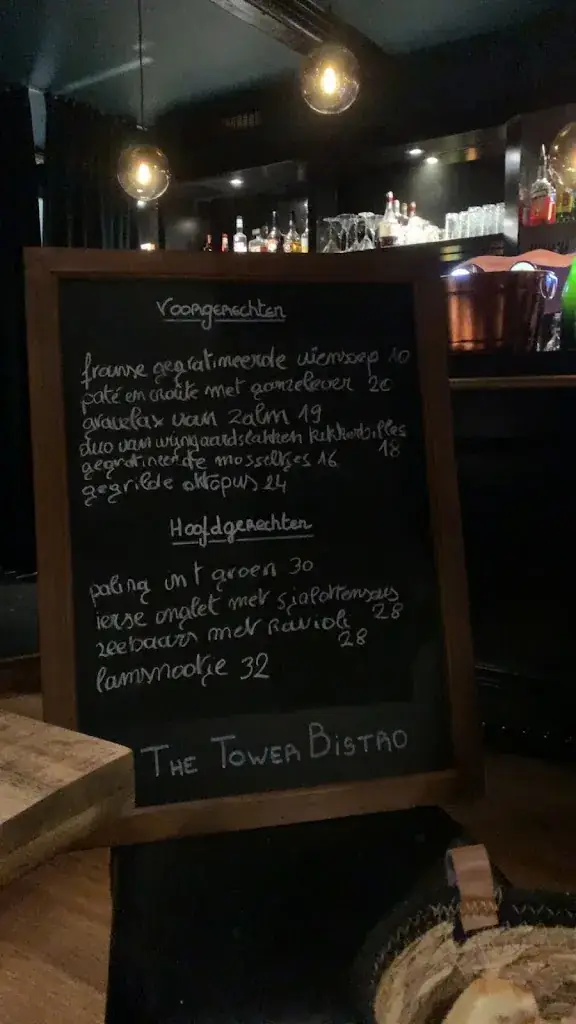 Voorgerechten
franse gegratineerde uiensoep 10
paté en croûte met ganzelever 20
gravelax van zalm 19
duo van wijngaardslakken kikkerbilles 18
gegratineerde mosseltjes 16
gegrilde oktopus 24
Hoofdgerechten
paling in t groen 30
ierse onglet met sjalottensaus 28
zeebaars met Ravioli 28
lamsnootje 32
THE TOWER BISTRO